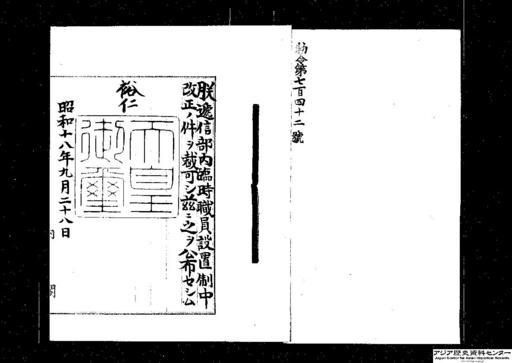 勅令第七百四十二號
朕遞信部內臨時職員設置制中
改正ノ件ヲ裁可シ茲ニ之ヲ公布セシム
裕仁
天皇御璽
昭和十八年九月二十八日
内閣
アジア歴史資料センター
Japan Center for Asian Historical Records